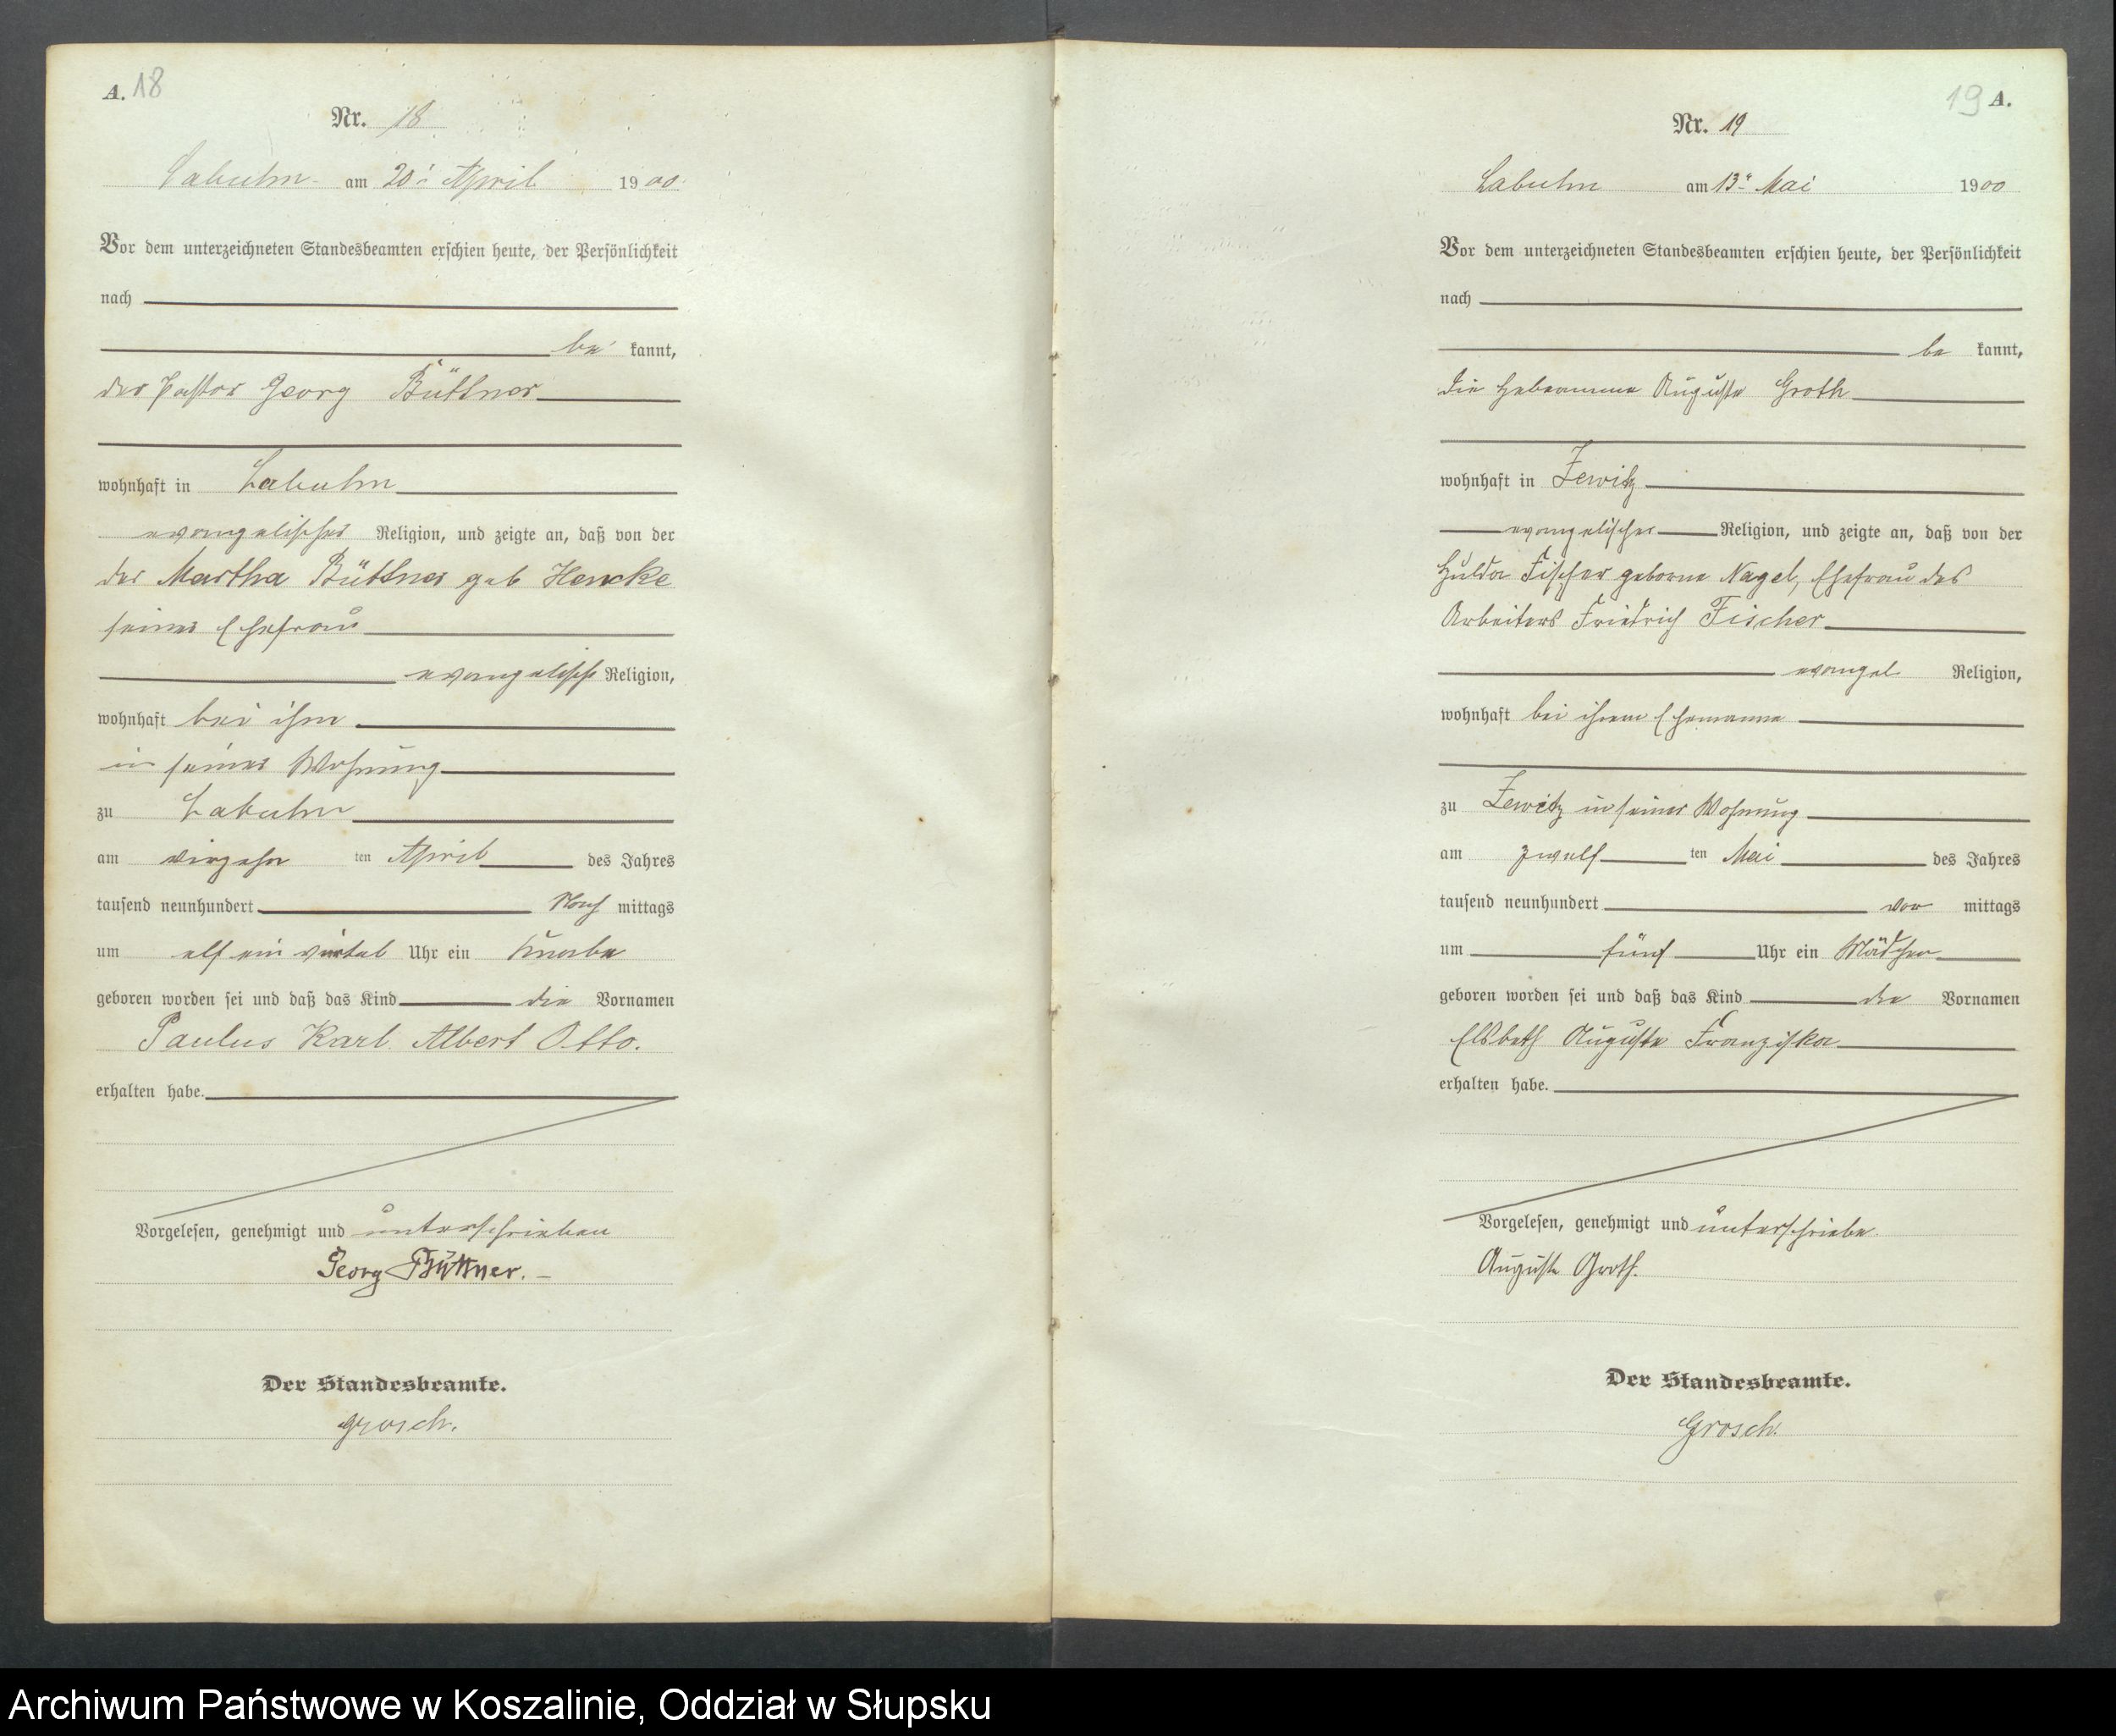 A. 18
Nr. 18
Labuhn am 20ᵗ April 1900
Vor dem unterzeichneten Standesbeamten erschien heute, der Persönlichkeit
nach
be kannt,
der Pastor Georg Büttner
wohnhaft in Labuhn
evangelischer Religion, und zeigte an, daß von der
der Martha Büttner geb Hencke
seiner Ehefrau
evangelische Religion,
wohnhaft bei ihm
in seiner Wohnung
zu Labuhn
am vierzehn ten April des Jahres
tausend neunhundert Nach mittags
um elf ein viertel Uhr ein Knabe
geboren worden sei und daß das Kind die Vornamen
Paulus Karl Albert Otto.
erhalten habe.
Vorgelesen, genehmigt und unterschrieben
Georg Büttner.
Der Standesbeamte.
Grosch.
19 A.
Nr. 19
Labuhn am 13ᵗ Mai 1900
Vor dem unterzeichneten Standesbeamten erschien heute, der Persönlichkeit
nach
be kannt,
die Hebamme Auguste Groth
wohnhaft in Zewitz
evangelischer Religion, und zeigte an, daß von der
Hulda Fischer geborne Nagel, Ehefrau des
Arbeiters Friedrich Fischer
evangel Religion,
wohnhaft bei ihrem Ehemanne
zu Zewitz in seiner Wohnung
am zwölf ten Mai des Jahres
tausend neunhundert vor mittags
um fünf Uhr ein Mädchen
geboren worden sei und daß das Kind die Vornamen
Elsbeth Auguste Franziska
erhalten habe.
Vorgelesen, genehmigt und unterschriebe
Auguste Groth.
Der Standesbeamte.
Grosch.
Archiwum Państwowe w Koszalinie, Oddział w Słupsku